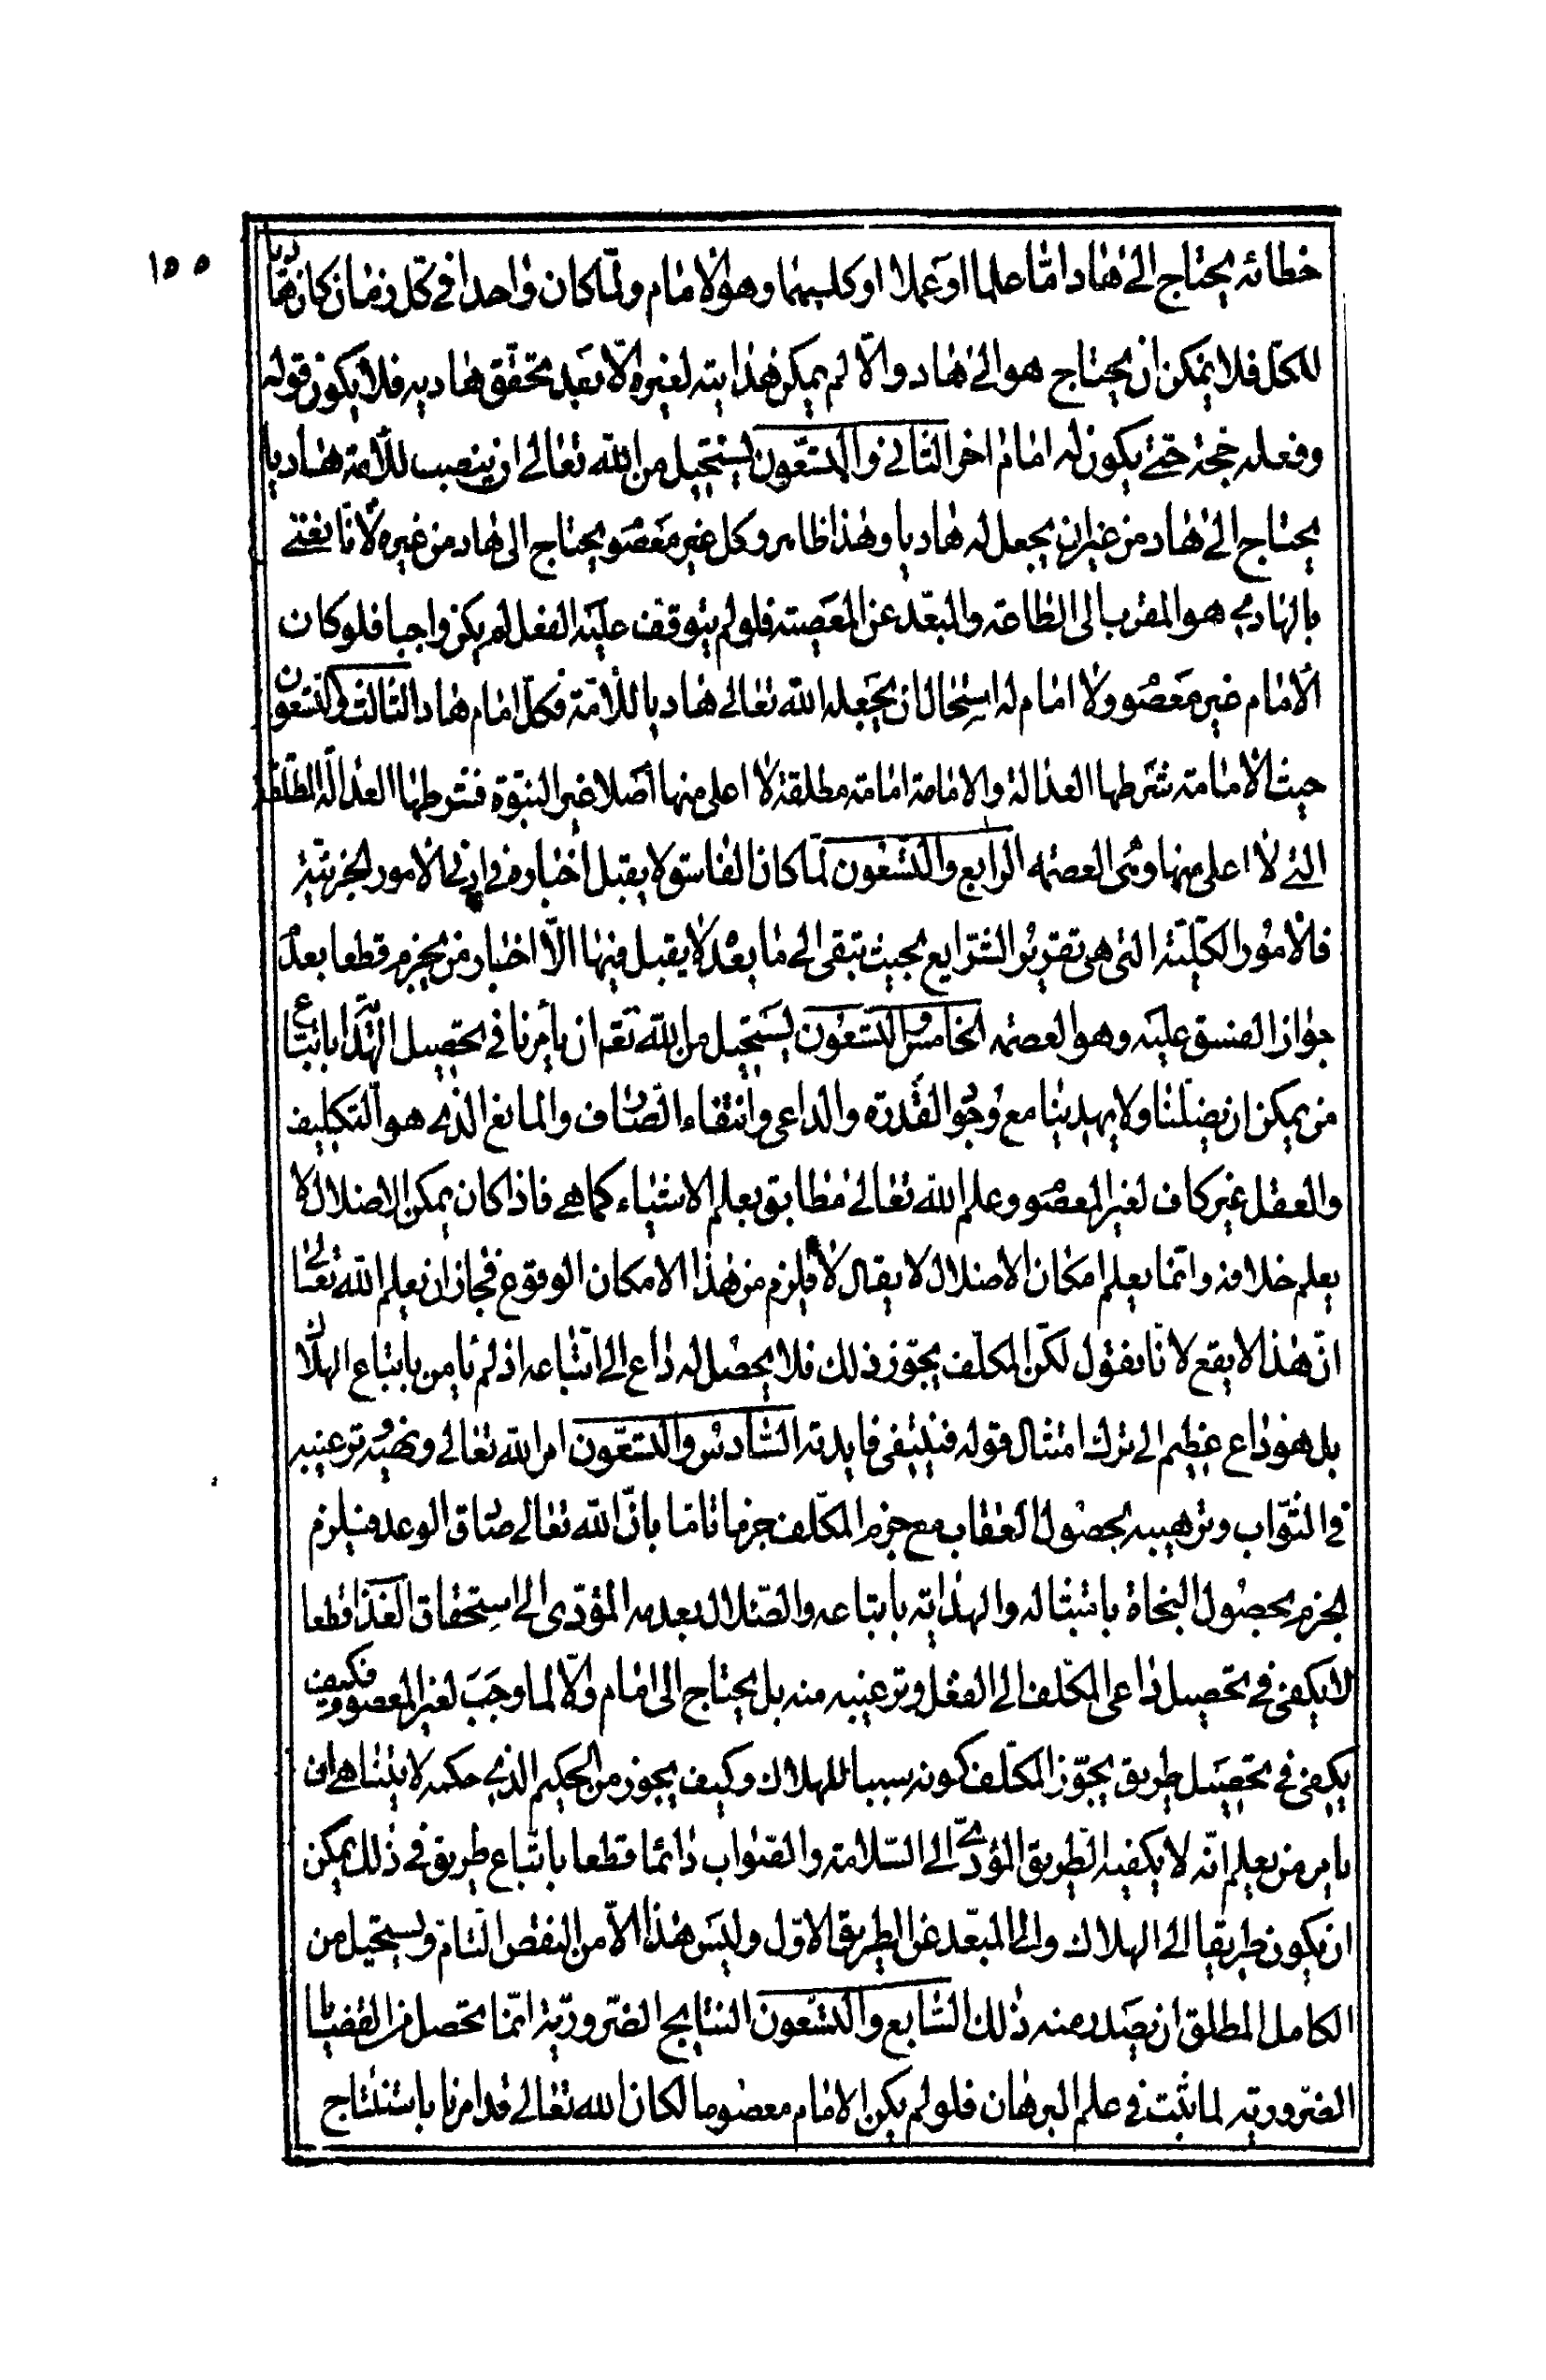 ١٥٥
خطائه يحتاج الى هاد امّا علما او عملا او كليهما وهو الامام ولمّا كان واحدا في كلّ زمان كان هاديا
للكلّ فلا يمكن ان يحتاج هو الى هاد والّا لم يمكن هدايته لغيره الّا بعد تحقّق هاديه فلا يكون قوله
وفعله حجّة حتى يكون له امام اخر الثاني والتسعون يستحيل من الله تعالى ان ينصب للامّة هاديا
يحتاج الى هاد من غير ان يجعل له هاديا وهذا ظاهر وكل غير معصوم يحتاج الى هاد من غيره لانّا نعني
بالهادي هو المقرب الى الطاعة والمبعّد عن المعصية فلو لم يتوقف عليه الفعل لم يكن واجبا فلو كان
الامام غير معصوم ولا امام له استحال ان يجعله الله تعالى هاديا للامّة فكلّ امام هاد الثالث والتسعون
حيث الامامة شرطها العدالة والامامة امامة مطلقة لا اعلى منها اصلا غير النبوّة فشرطها العدالة المطلقة
التي لا اعلى منها وهى العصمة الرابع والتسعون لمّا كان الفاسق لا يقبل اخباره في ادنى الامور الجزئيّة
فالامور الكليّة التى هى تقرير الشرايع بحيث تبقى الى ما بعد لا يقبل فيها الّا اخبار من يجزم قطعا بعدم
جواز الفسق عليه وهو العصمة الخامس والتسعون يستحيل من الله تعم ان يأمرنا في تحصيل الهداية باتباع
من يمكن ان يضلّنا ولا يهدينا مع وجود القدرة والداعى وانتفاء الصارف والمانع الذي هو التكليف
والعقل غير كاف لغير المعصوم وعلم الله تعالى مطابق يعلم الاشياء كما هي فاذا كان يمكن الاضلال لا
يعلم خلافه وانما يعلم امكان الاضلال لا يقال لا يلزم من هذا الامكان الوقوع فجاز ان يعلم الله تعالى
انّ هذا لا يقع لانّا نقول لكن المكلّف يجوّز ذلك فلا يحصل له داع الى اتباعه اذ لم يأمن باتباعه الهلاك
بل هو داع عظيم الى ترك امتثال قوله فينتفى فايدته السّادس والتسعون امر الله تعالى ونهيه ترغيبه
في الثّواب وترهيبه بحصول العقاب مع جزم المكلف جزما تامّا بانّ الله تعالى صادق الوعد فيلزم
الجزم بحصول النجاة بامتثاله والهداية باتباعه والضلال بعدمه المؤدّى الى استحقاق العذاب قطعا
لا يكفى في تحصيل داعى المكلف الى الفعل وترغيبه منه بل يحتاج الى امام والّا لما وجب لغير المعصوم فكيف
يكفى في تحصيل طريق يجوّز المكلف كونه سببا للهلاك وكيف يجوز من الحكيم الذي حكمه لا يتناهى ان
يامر من يعلم انّه لا يكفيه الطريق المؤدّي الى السّلامة والصواب دائما قطعا باتّباع طريق في ذلك يمكن
ان يكون طريقا الى الهلاك والى المبعّد عن الطريق الاوّل وليس هذا الّا من النقض التام ويستحيل من
الكامل المطلق ان يصدر منه ذلك السّابع والتسعون النتايج الضّروريّة انّما تحصل من القضايا
الضّروريّه لما ثبت في علم البرهان فلو لم يكن الامام معصوما لكان الله تعالى قد امرنا باستنتاج